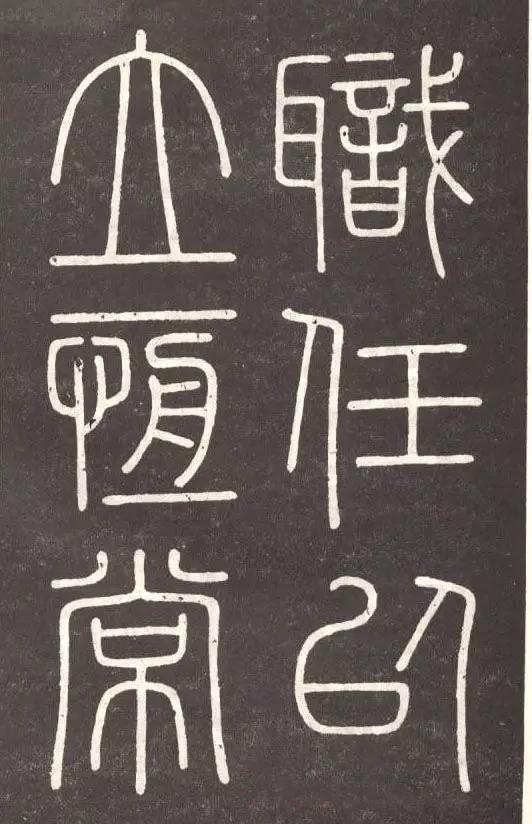 職任以
立恆常